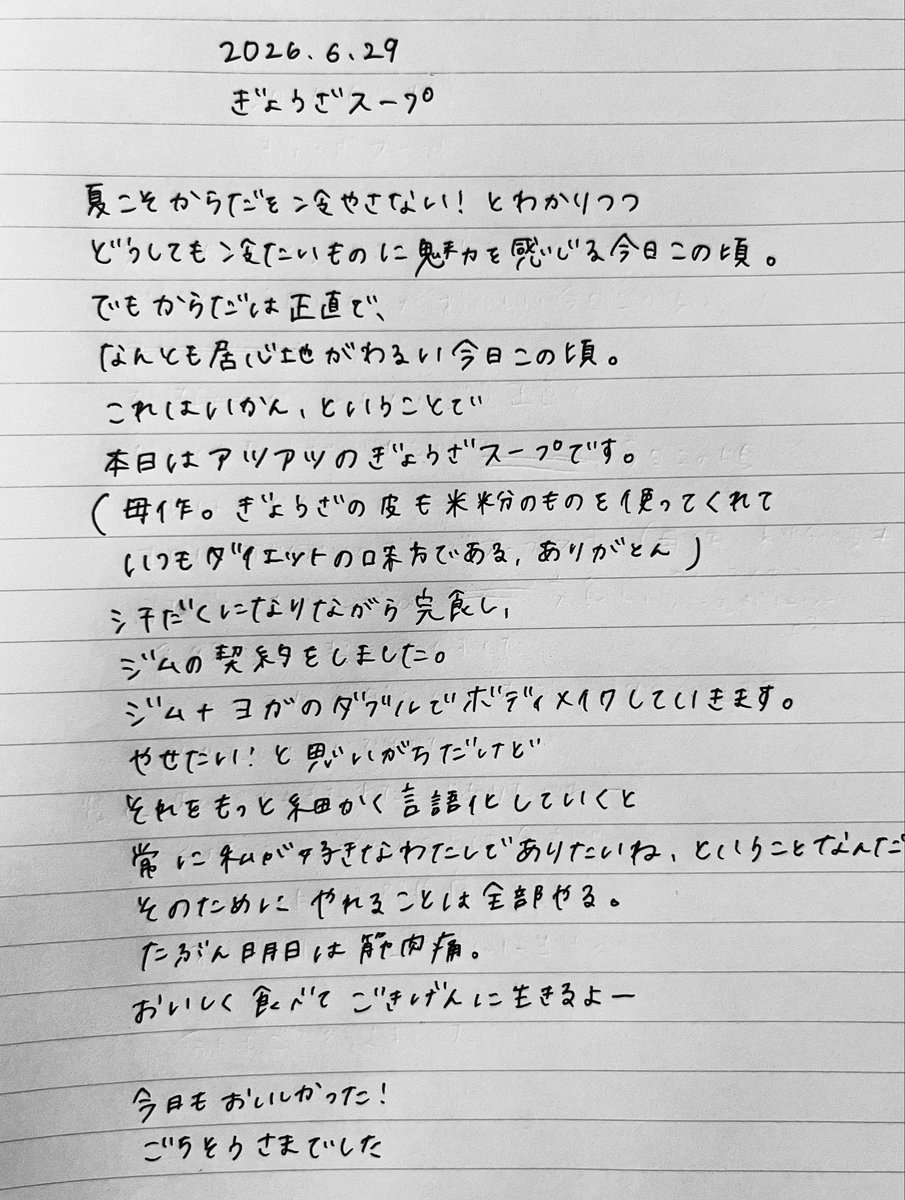 2026.6.29
ぎょうざスープ
夏こそからだを冷やさない！とわかりつつ
どうしても冷たいものに魅力を感じる今日この頃。
でもからだは正直で、
なんとも居心地がわるい今日この頃。
これはいかん、ということで
本日はアツアツのぎょうざスープです。
（母作。ぎょうざの皮も米粉のものを使ってくれて
いつもダイエットの味方である、ありがとん）
汗だくになりながら完食し、
ジムの契約をしました。
ジム+ヨガのダブルでボディメイクしていきます。
やせたい！と思いがちだけど
それをもっと細かく言語化していくと
常に私が好きなわたしでありたいね、ということなんだ
そのために やれることは全部やる。
たぶん明日は筋肉痛。
おいしく食べて ごきげんに生きるよー
今日もおいしかった！
ごちそうさまでした